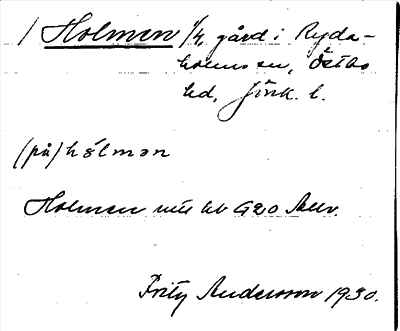 / Holmen 1/4 gård i Ryda-
holms sn, Östbo
hd, Jönk. l.
(på) hólmən
Holmen mtl bv G20 Allv.
Fritz Andersson 1930.